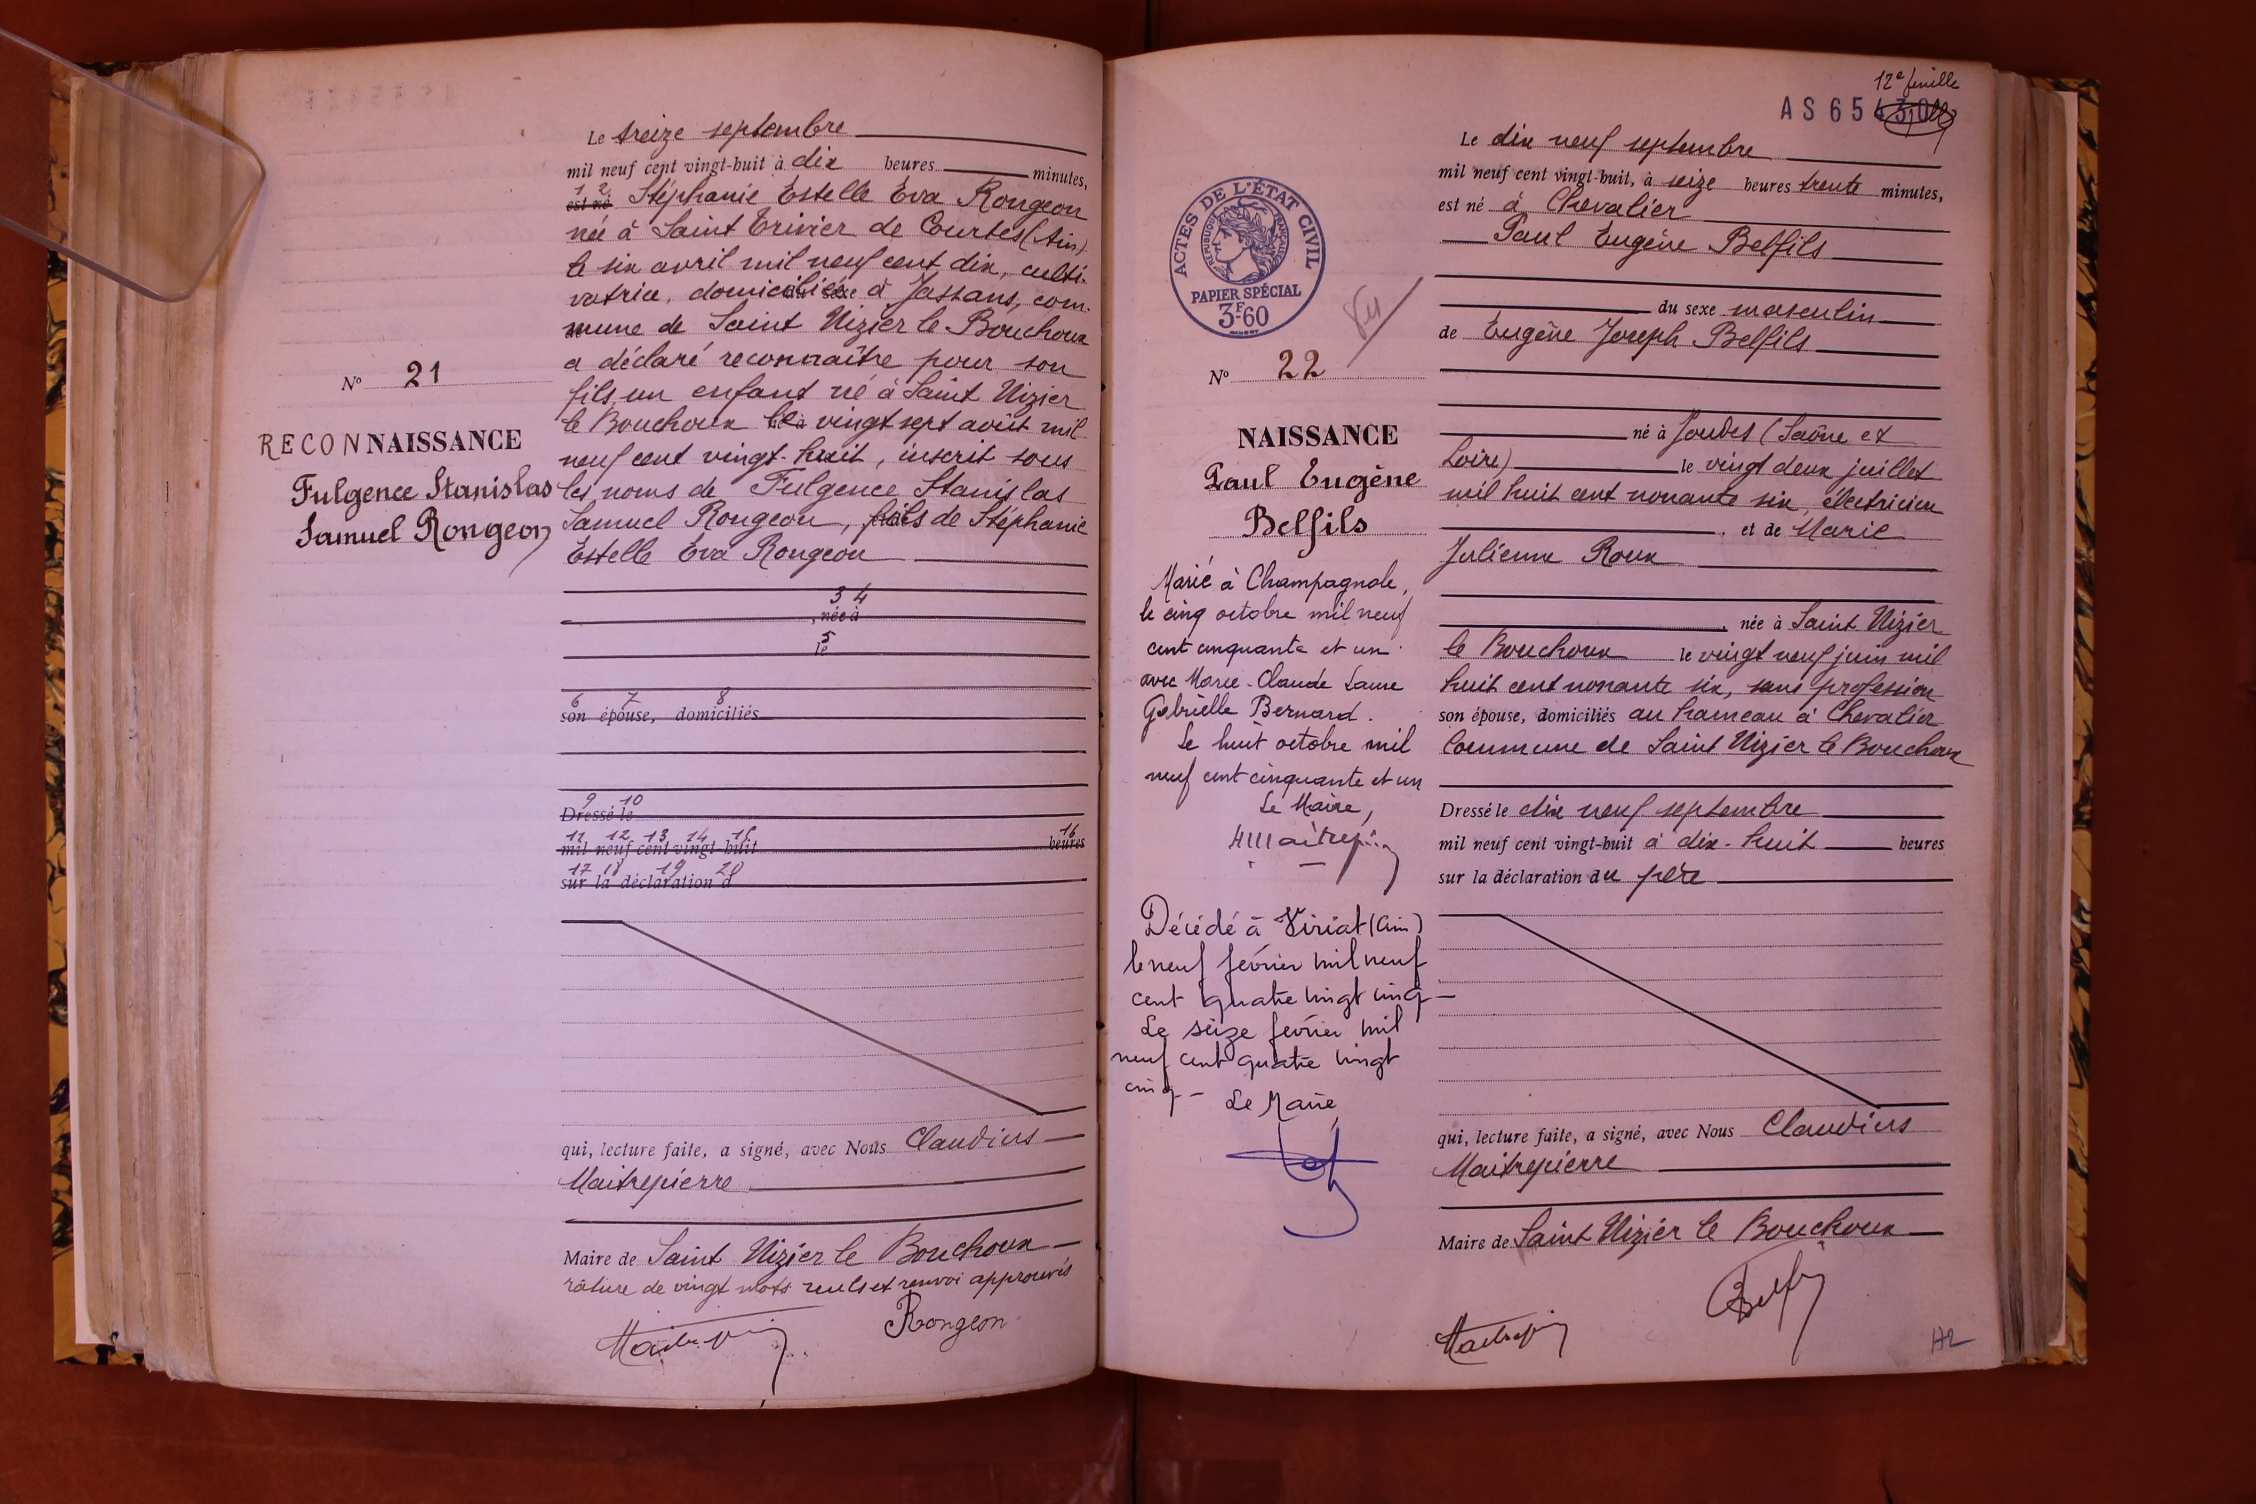 Le treize septembre
mil neuf cent vingt-huit à dix heures minutes,
1 2
est né Stéphanie Estelle Eva Rongeon
née à Saint Trivier de Courtes (Ain)
le six avril mil neuf cent dix, culti-
vatrice, domiciliée à Jassans, com-
mune de Saint Nizier le Bouchoux
a déclaré reconnaître pour son
fils, un enfant né à Saint Nizier
le Bouchoux le vingt sept août mil
neuf cent vingt-huit, inscrit sous
les noms de Fulgence Stanislas
Samuel Rongeon, fils de Stéphanie
Estelle Eva Rongeon
3 4
, née à
5
le
6 7 8
son épouse, domiciliés
9 10
Dressé le
11 12 13 14 15 16
mil neuf cent vingt-huit heures
17 18 19 20
sur la déclaration d
qui, lecture faite, a signé, avec Nous Claudius
Maitrepierre
Maire de Saint Nizier le Bouchoux
râture de vingt mots nuls et renvoi approuvés
Rongeon
N° 21
RECONNAISSANCE
Fulgence Stanislas
Samuel Rongeon
12e feuille
AS 65
ACTES DE L'ÉTAT CIVIL
RÉPUBLIQUE FRANÇAISE
PAPIER SPÉCIAL
3F60
N° 22
NAISSANCE
Paul Eugène
Belfils
Marié à Champagnole,
le cinq octobre mil neuf
cent cinquante et un
avec Marie-Claude Laure
Gabrielle Bernard.
Le huit octobre mil
neuf cent cinquante et un
Le Maire,
Décédé à Viriat (Ain)
le neuf février mil neuf
cent quatre vingt cinq -
Le seize février mil
neuf cent quatre vingt
cinq -
Le Maire
Le dix neuf septembre
mil neuf cent vingt-huit, à seize heures trente minutes,
est né à Chevalier
Paul Eugène Belfils
du sexe masculin
de Eugène Joseph Belfils
né à Joudes (Saône et
Loire) le vingt deux juillet
mil huit cent nonante six, électricien
, et de Marie
Julienne Roux
, née à Saint Nizier
le Bouchoux le vingt neuf juin mil
huit cent nonante six, sans profession
son épouse, domiciliés au hameau à Chevalier
Commune de Saint Nizier le Bouchoux
Dressé le dix neuf septembre
mil neuf cent vingt-huit à dix-huit heures
sur la déclaration du père
qui, lecture faite, a signé, avec Nous Claudius
Maitrepierre
Maire de Saint Nizier le Bouchoux